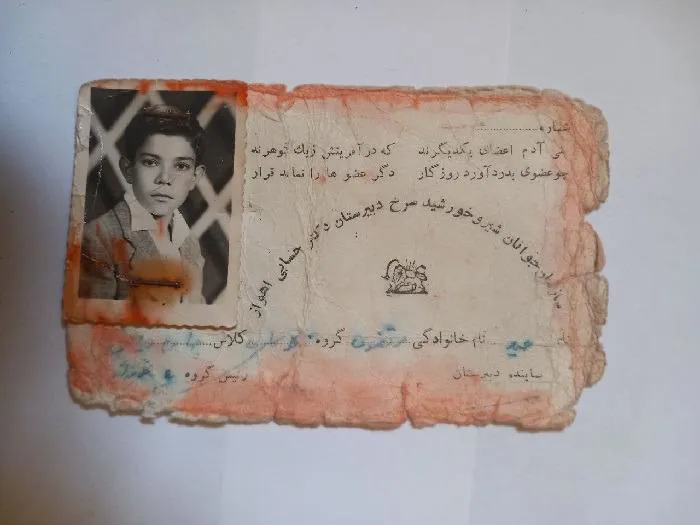 شماره
بنی آدم اعضای یکدیگرند که در آفرینش ز یک گوهرند
چو عضوی بدرد آورد روزگار دگر عضو ها را نماند قرار
سازمان جوانان شیر و خورشید سرخ دبیرستان دکتر حسابی اهواز
نام نام خانوادگی گروه کلاس
نماینده دبیرستان رئیس گروه